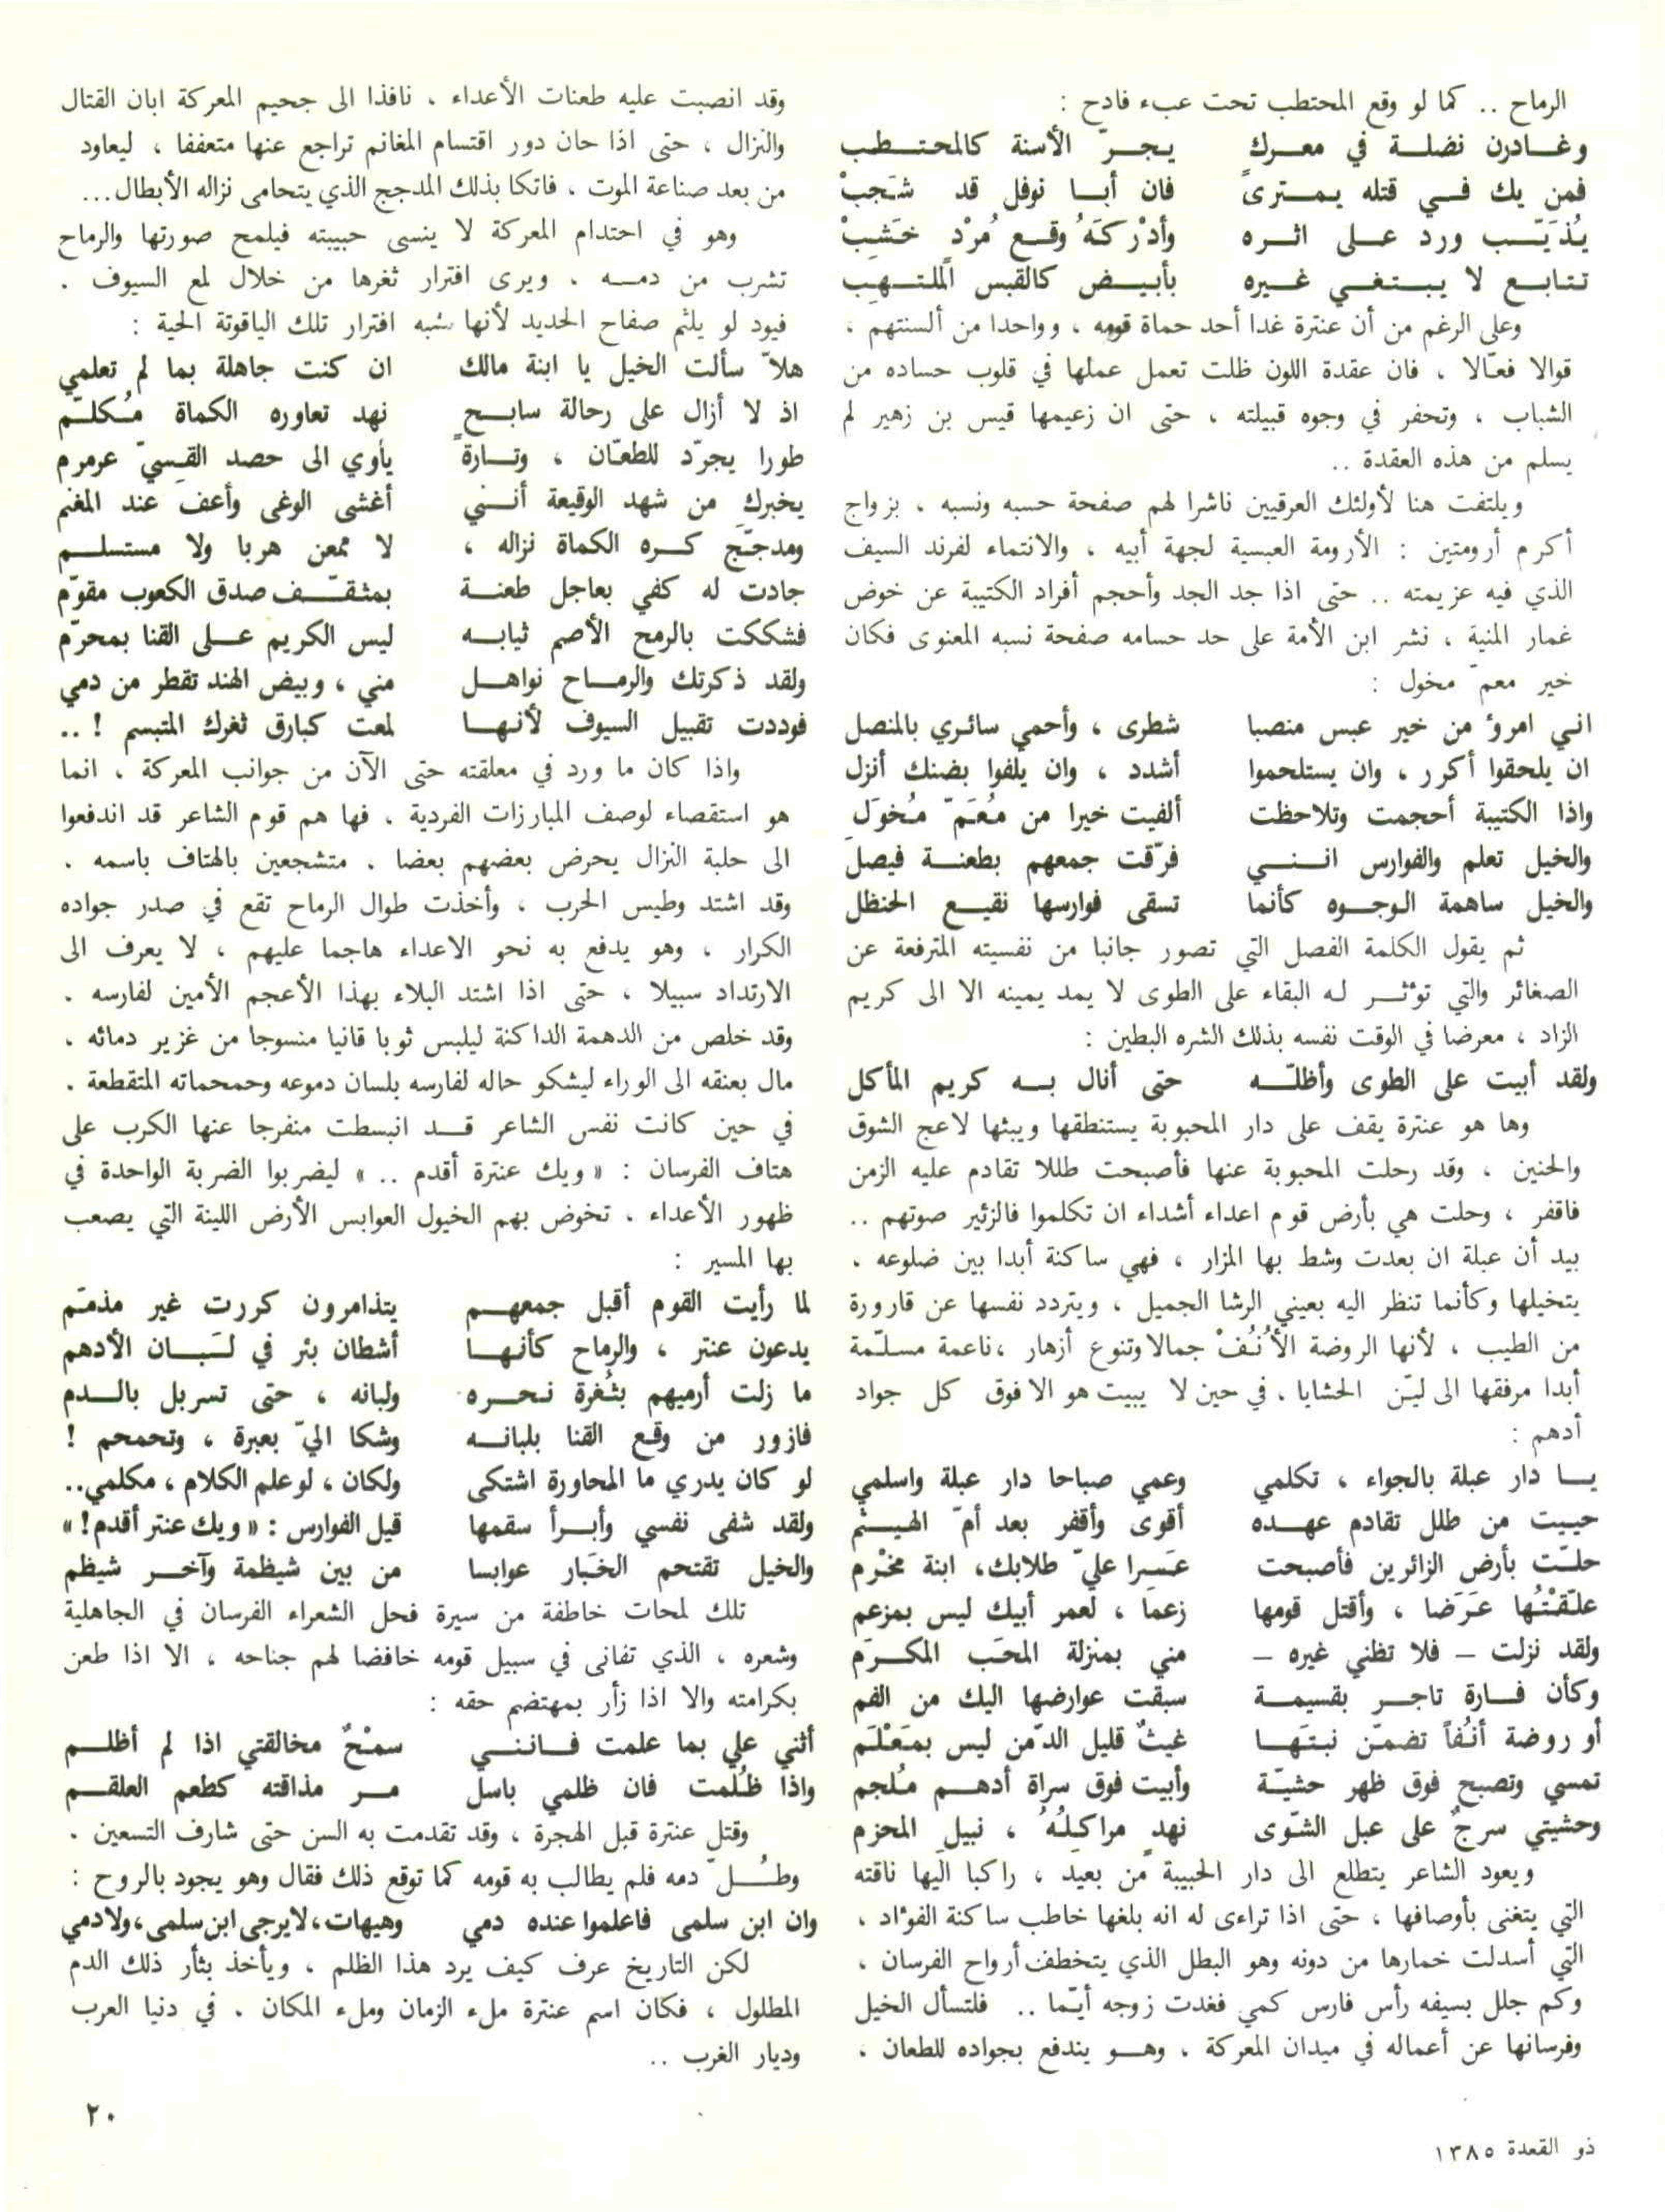 الرماح .. كما لو وقع المحتطب تحت عبء فادح :
وغـادرن نضلـة في معـرك يجـرّ الأسنة كالمحتـطـب
فمن يك فـي قتله يمـترى فان أبـا نوفل قد شَجبْ
يُذَيّـب ورد عـلى اثـره وأدْركَهُ وقـع مُرْدٍ خَشِبْ
تتابـع لا يبـتغـي غـيره بأبيـض كالقبس الملتـهِب
وعلى الرغم من أن عنترة غدا أحد حماة قومه ، وواحدا من ألسنتهم ،
قوالا فعّالا ، فان عقدة اللون ظلت تعمل عملها في قلوب حساده من
الشباب ، وتحفر في وجوه قبيلته ، حتى ان زعيمها قيس بن زهير لم
يسلم من هذه العقدة ..
ويلتفت هنا لأولئك العرقيين ناشرا لهم صفحة حسبه ونسبه ، بزواج
أكرم أرومتين : الأرومة العبسية لجهة أبيه ، والانتماء لفرند السيف
الذي فيه عزيمته .. حتى اذا جد الجد وأحجم أفراد الكتيبة عن خوض
غمار المنية ، نشر ابن الأمة على حد حسامه صفحة نسبه المعنوى فكان
خير معم مخول :
اني امروٌ من خير عبس منصبا شطرى ، وأحمي سائري بالمنصل
ان يلحقوا أكرر ، وان يستلحموا أشدد ، وان يلفوا بضنك أنزل
واذا الكتيبة أحجمت وتلاحظت ألفيت خيرا من مُعَمّ مُخوَلِ
والخيل تعلم والفوارس انـنـي فرّقت جمعهم بطعنـة فيصل
والخيل ساهمة الوجـوه كأنما تسقى فوارسها نقيـع الحنظل
ثم يقول الكلمة الفصل التي تصور جانبا من نفسيته المترفعة عن
الصغائر والتي توٌثـر له البقاء على الطوى لا يمد يمينه الا الى كريم
الزاد ، معرضا في الوقت نفسه بذلك الشره البطين :
ولقد أبيت على الطوى وأظلّـه حتى أنال بـه كريم المأكل
وها هو عنترة يقف على دار المحبوبة يستنطقها ويبثها لاعج الشوق
والحنين ، وقد رحلت المحبوبة عنها فأصبحت طللا تقادم عليه الزمن
فاقفر ، وحلت هي بأرض قوم اعداء أشداء ان تكلموا فالزئير صوتهم ..
بيد أن عبلة ان بعدت وشط بها المزار ، فهي ساكنة أبدا بين ضلوعه ،
يتخيلها وكأنما تنظر اليه بعيني الرشا الجميل ، ويتردد نفسها عن قارورة
من الطيب ، لأنها الروضة الأُنُفْ جمالا وتنوع أزهار ، ناعمة مسلّمة
أبدا مرفقها الى ليّن الحشايا ، في حين لا يبيت هو الا فوق كل جواد
أدهم :
يـا دار عبلة بالجواء ، تكلمي وعمي صباحا دار عبلة واسلمي
حييت من طلل تقادم عهـده أقوى وأقفر بعد أمّ الهيـثم
حلـّت بأرض الزائرين فأصبحت عَسِرا عليّ طلابك، ابنة مخْرم
علّقتُها عَرَضا ، وأقتل قومها زعما ، لعمر أبيك ليس بمزعم
ولقد نزلت – فلا تظني غيره – مني بمنزلة المحَب المكـرَم
وكأن فـارة تاجـر بقسيمـة سبقت عوارضها اليك من الفم
أو روضة أنُفاً تضمّن نبتَهـا غيثٌ قليل الدّمن ليس بمَعْلَم
تمسي وتصبح فوق ظهر حشيّـة وأبيت فوق سراة أدهـم مُلجم
وحشيتي سرجٌ على عبل الشوّى نهدٍ مراكلُهُ ، نبيل المحزم
ويعود الشاعر يتطلع الى دار الحبيبة من بعيد ، راكبا اليها ناقته
التي يتغنى بأوصافها ، حتى اذا تراءى له انه بلغها خاطب ساكنة الفوٌاد ،
التي أسدلت خمارها من دونه وهو البطل الذي يتخطف أرواح الفرسان ،
وكم جلل بسيفه رأس فارس كمي فغدت زوجه أيّما .. فلتسأل الخيل
وفرسانها عن أعماله في ميدان المعركة ، وهـو يندفع بجواده للطعان ،
وقد انصبت عليه طعنات الأعداء ، نافذا الى جحيم المعركة ابان القتال
والنزال ، حتى اذا حان دور اقتسام المغانم تراجع عنها متعففا ، ليعاود
من بعد صناعة الموت ، فاتكا بذلك المدجج الذي يتحامى نزاله الأبطال...
وهو في احتدام المعركة لا ينسى حبيبته فيلمح صورتها والرماح
تشرب من دمـه ، ويرى افترار ثغرها من خلال لمع السيوف .
فيود لو يلثم صفاح الحديد لأنها شبه افترار تلك الياقوتة الحية :
هلاّ سألت الخيل يا ابنة مالك ان كنت جاهلة بما لم تعلمي
اذ لا أزال على رحالة سابـح نهد تعاوره الكماة مُكلـّم
طورا يجرّد للطعّان ، وتـارةً يأوي الى حصد القِسيّ عرمرم
يخبركِ من شهد الوقيعة أنـني أغشى الوغى وأعف عند المغنم
ومدجّجٍ كـره الكماة نزاله ، لا ممعن هربا ولا مستسلـم
جادت له كفي بعاجل طعنـة بمثقـّف صدق الكعوب مقوّم
فشككت بالرمح الأصم ثيابـه ليس الكريم عـلى القنا بمحرّم
ولقد ذكرتك والرمـاح نواهـل مني ، وبيض الهند تقطر من دمي
فوددت تقبيل السيوف لأنهـا لمعت كبارق ثغرك المتبسم ! ..
واذا كان ما ورد في معلقته حتى الآن من جوانب المعركة ، انما
هو استقصاء لوصف المبارزات الفردية ، فها هم قوم الشاعر قد اندفعوا
الى حلبة النزال يحرض بعضهم بعضا ، متشجعين بالهتاف باسمه .
وقد اشتد وطيس الحرب ، وأخذت طوال الرماح تقع في صدر جواده
الكرار ، وهو يدفع به نحو الاعداء هاجما عليهم ، لا يعرف الى
الارتداد سبيلا ، حتى اذا اشتد البلاء بهذا الأعجم الأمين لفارسه .
وقد خلص من الدهمة الداكنة ليلبس ثوبا قانيا منسوجا من غزير دمائه ،
مال بعنقه الى الوراء ليشكو حاله لفارسه بلسان دموعه وحمحماته المتقطعة .
في حين كانت نفس الشاعر قـد انبسطت منفرجا عنها الكرب على
هتاف الفرسان : « ويك عنترة أقدم .. » ليضربوا الضربة الواحدة في
ظهور الأعداء ، تخوض بهم الخيول العوابس الأرض اللينة التي يصعب
بها المسير :
لما رأيت القوم أقبل جمعهـم يتذامرون كررت غير مذمّم
يدعون عنتر ، والرماح كأنهـا أشطان بئر في لَبـان الأدهم
ما زلت أرميهم بثُغرة نحـره ولبانه ، حتى تسربل بالـدم
فازور من وقع القنا بلبانـه وشكا اليّ بعبرة ، وتحمحم !
لو كان يدري ما المحاورة اشتكى ولكان ، لو علم الكلام ، مكلمي..
ولقد شفى نفسي وأبـرأ سقمها قيل الفوارس : « ويك عنتر أقدم! »
والخيل تقتحم الخَبار عوابسا من بين شيظمة وآخـر شيظم
تلك لمحات خاطفة من سيرة فحل الشعراء الفرسان في الجاهلية
وشعره ، الذي تفانى في سبيل قومه خافضا لهم جناحه ، الا اذا طعن
بكرامته والا اذا زأر بمهتضم حقه :
أثني علي بما علمت فـانـني سمْحٌ مخالقتي اذا لم أظلـم
واذا ظُلمت فان ظلمي باسل مـر مذاقته كطعم العلقـم
وقتل عنترة قبل الهجرة ، وقد تقدمت به السن حتى شارف التسعين .
وطُـلّ دمه فلم يطالب به قومه كما توقع ذلك فقال وهو يجود بالروح :
وان ابن سلمى فاعلموا عنده دمي وهيهات، لايرجى ابن سلمى، ولا دمي
لكن التاريخ عرف كيف يرد هذا الظلم ، ويأخذ بثأر ذلك الدم
المطلول ، فكان اسم عنترة ملء الزمان وملء المكان . في دنيا العرب
وديار الغرب ..
٢٠
ذو القعدة ١٣٨٥